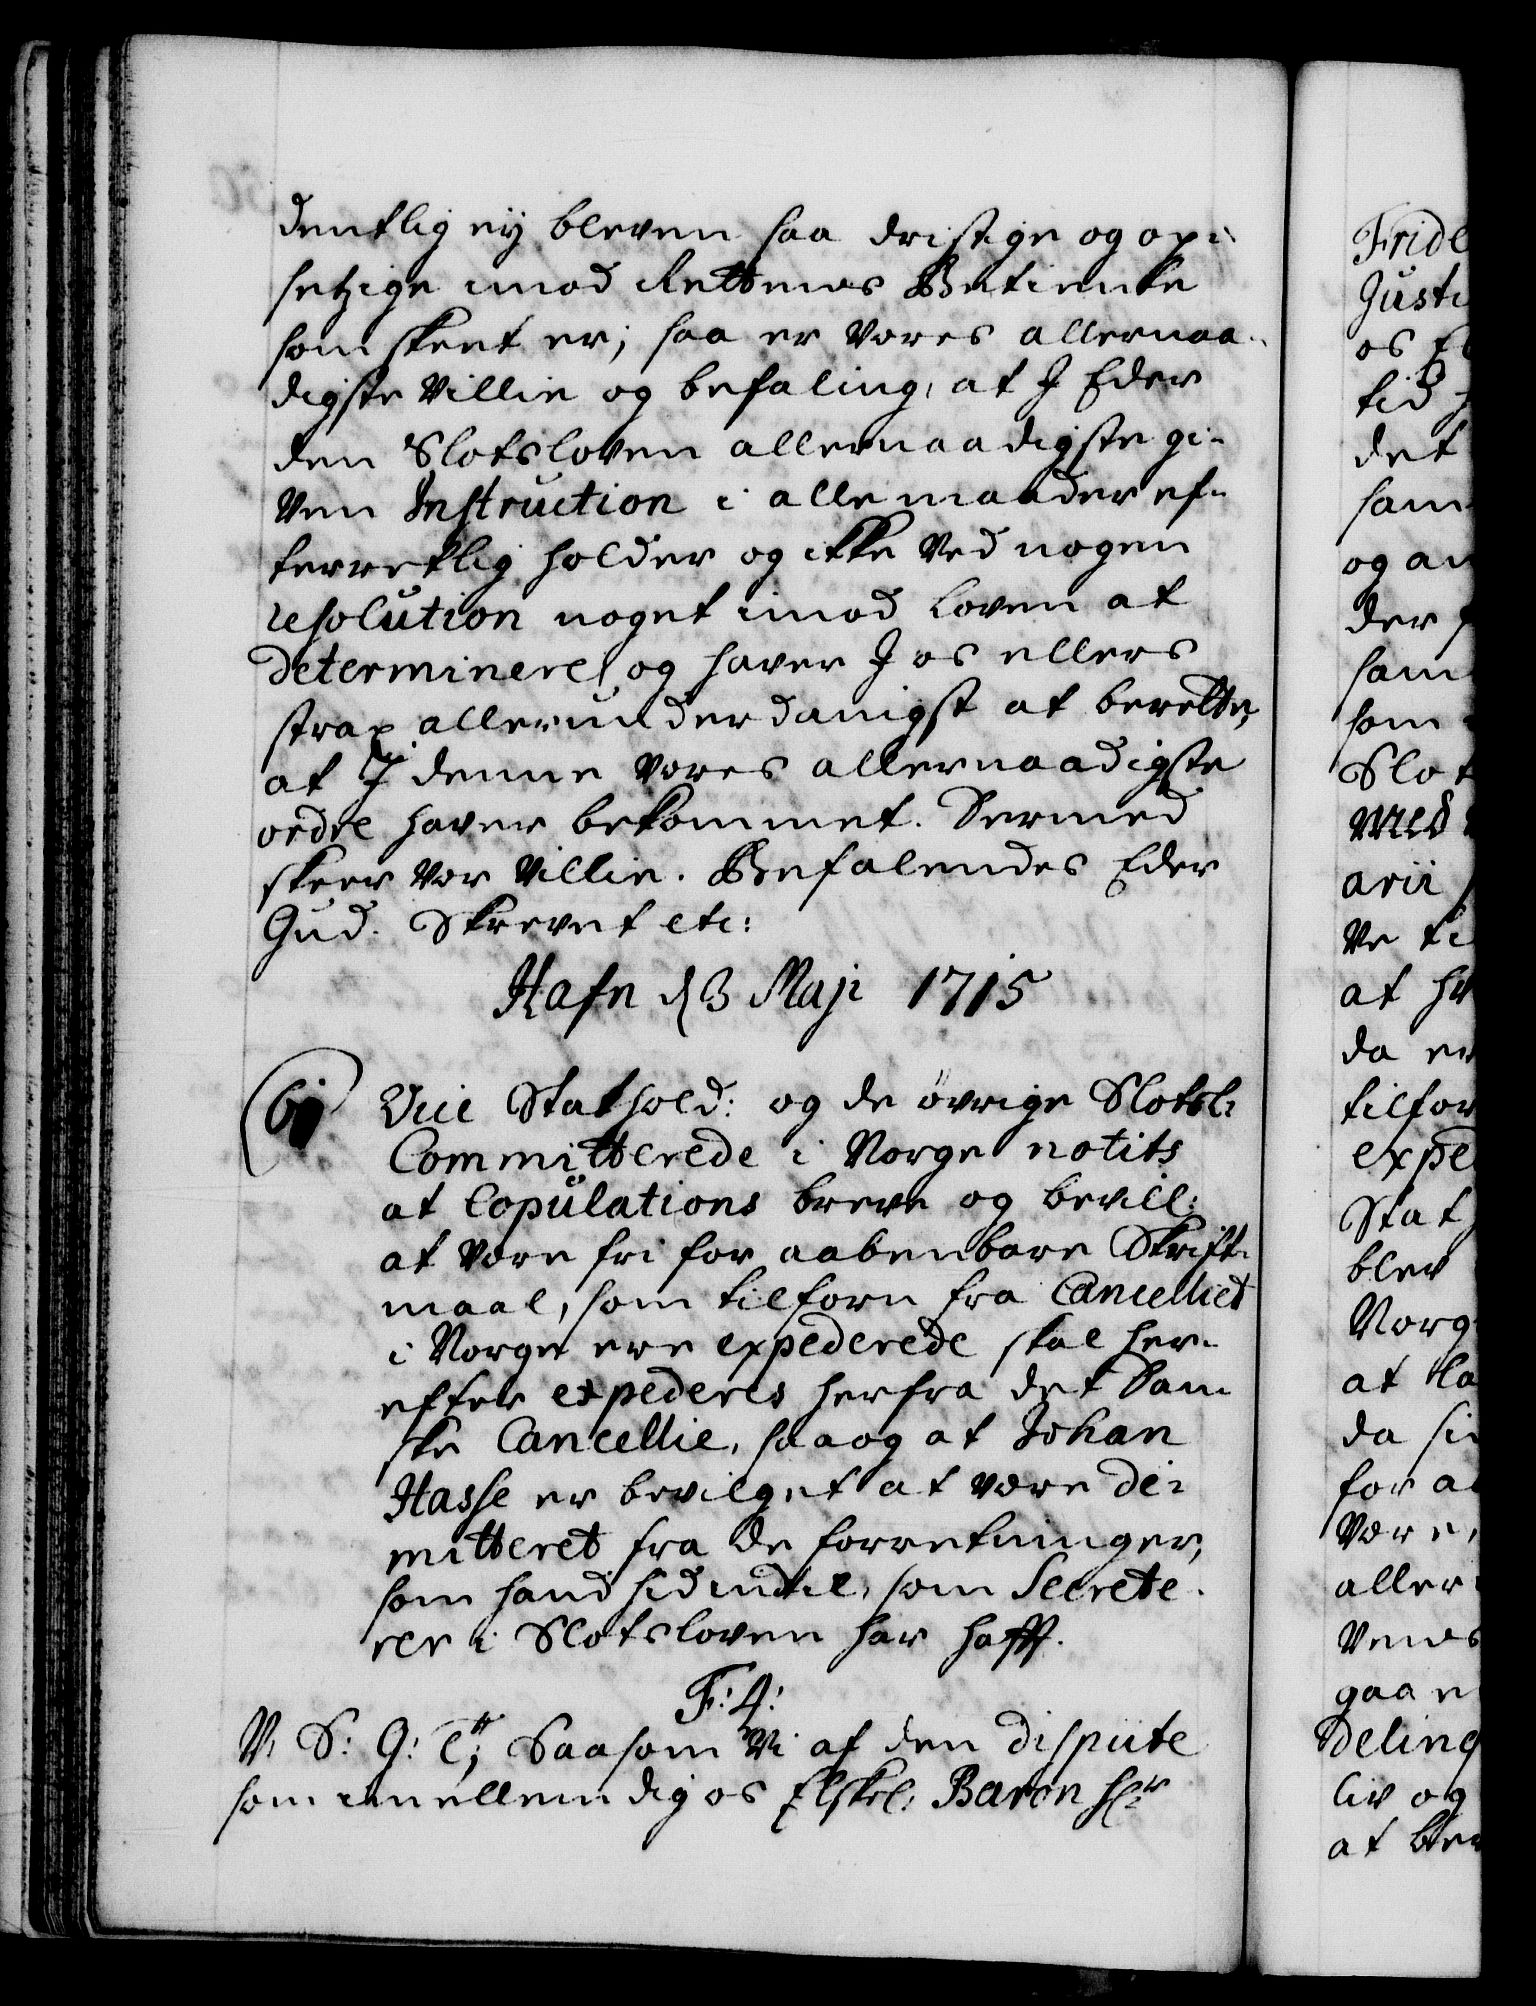 dentlig ey bleven saa dristige og op-
setzige imod Rettenes Betiente
som skeet er; saa er Vores allernaa-
digste Villie og befaling, at I Eder
den Slotsloven allernaadigste gi-
ven Instruction i alle maader ef-
terretlig holder og ikke Ved nogen
resolution noget imod Loven at
determinere, og haver I os ellers
strax allerunderdanigst at berette,
at I denne Vores allernaadigste
ordre haver bekommet. Dermed
skeer Vor Villie. Befalendes Eder
Gud. Skrevet etc:
Hafn d 3 Maji 1715
Vice Stathold: og de øvrige Slotsl:
Committerede i Norge notits
at Copulations breve og bevill:
at være fri for aabenbare Skrift-
maal, som tilforn fra Cancelliet
i Norge ere expederede skal her-
efter expederes herfra det Dan-
ske Cancellie, saa og at Johan
Hasse er bevilget at være di-
mitteret fra de forretninger,
som hand hidindtil, som Secrete-
rer i Slotsloven har hafft.
F: 4:
V. S: G: T; Saasom Vi af den dispute
som imellem dig os Elskel: Baron Hr
Fride
Justi
os El
tid
det
sam
og an
der
sam
som
Slot
med
arii
Ve ti
at
da er
tilfor
expe
Stat
blev
Norg
at la
da
for a
Være,
aller
gaa
deling
liv og